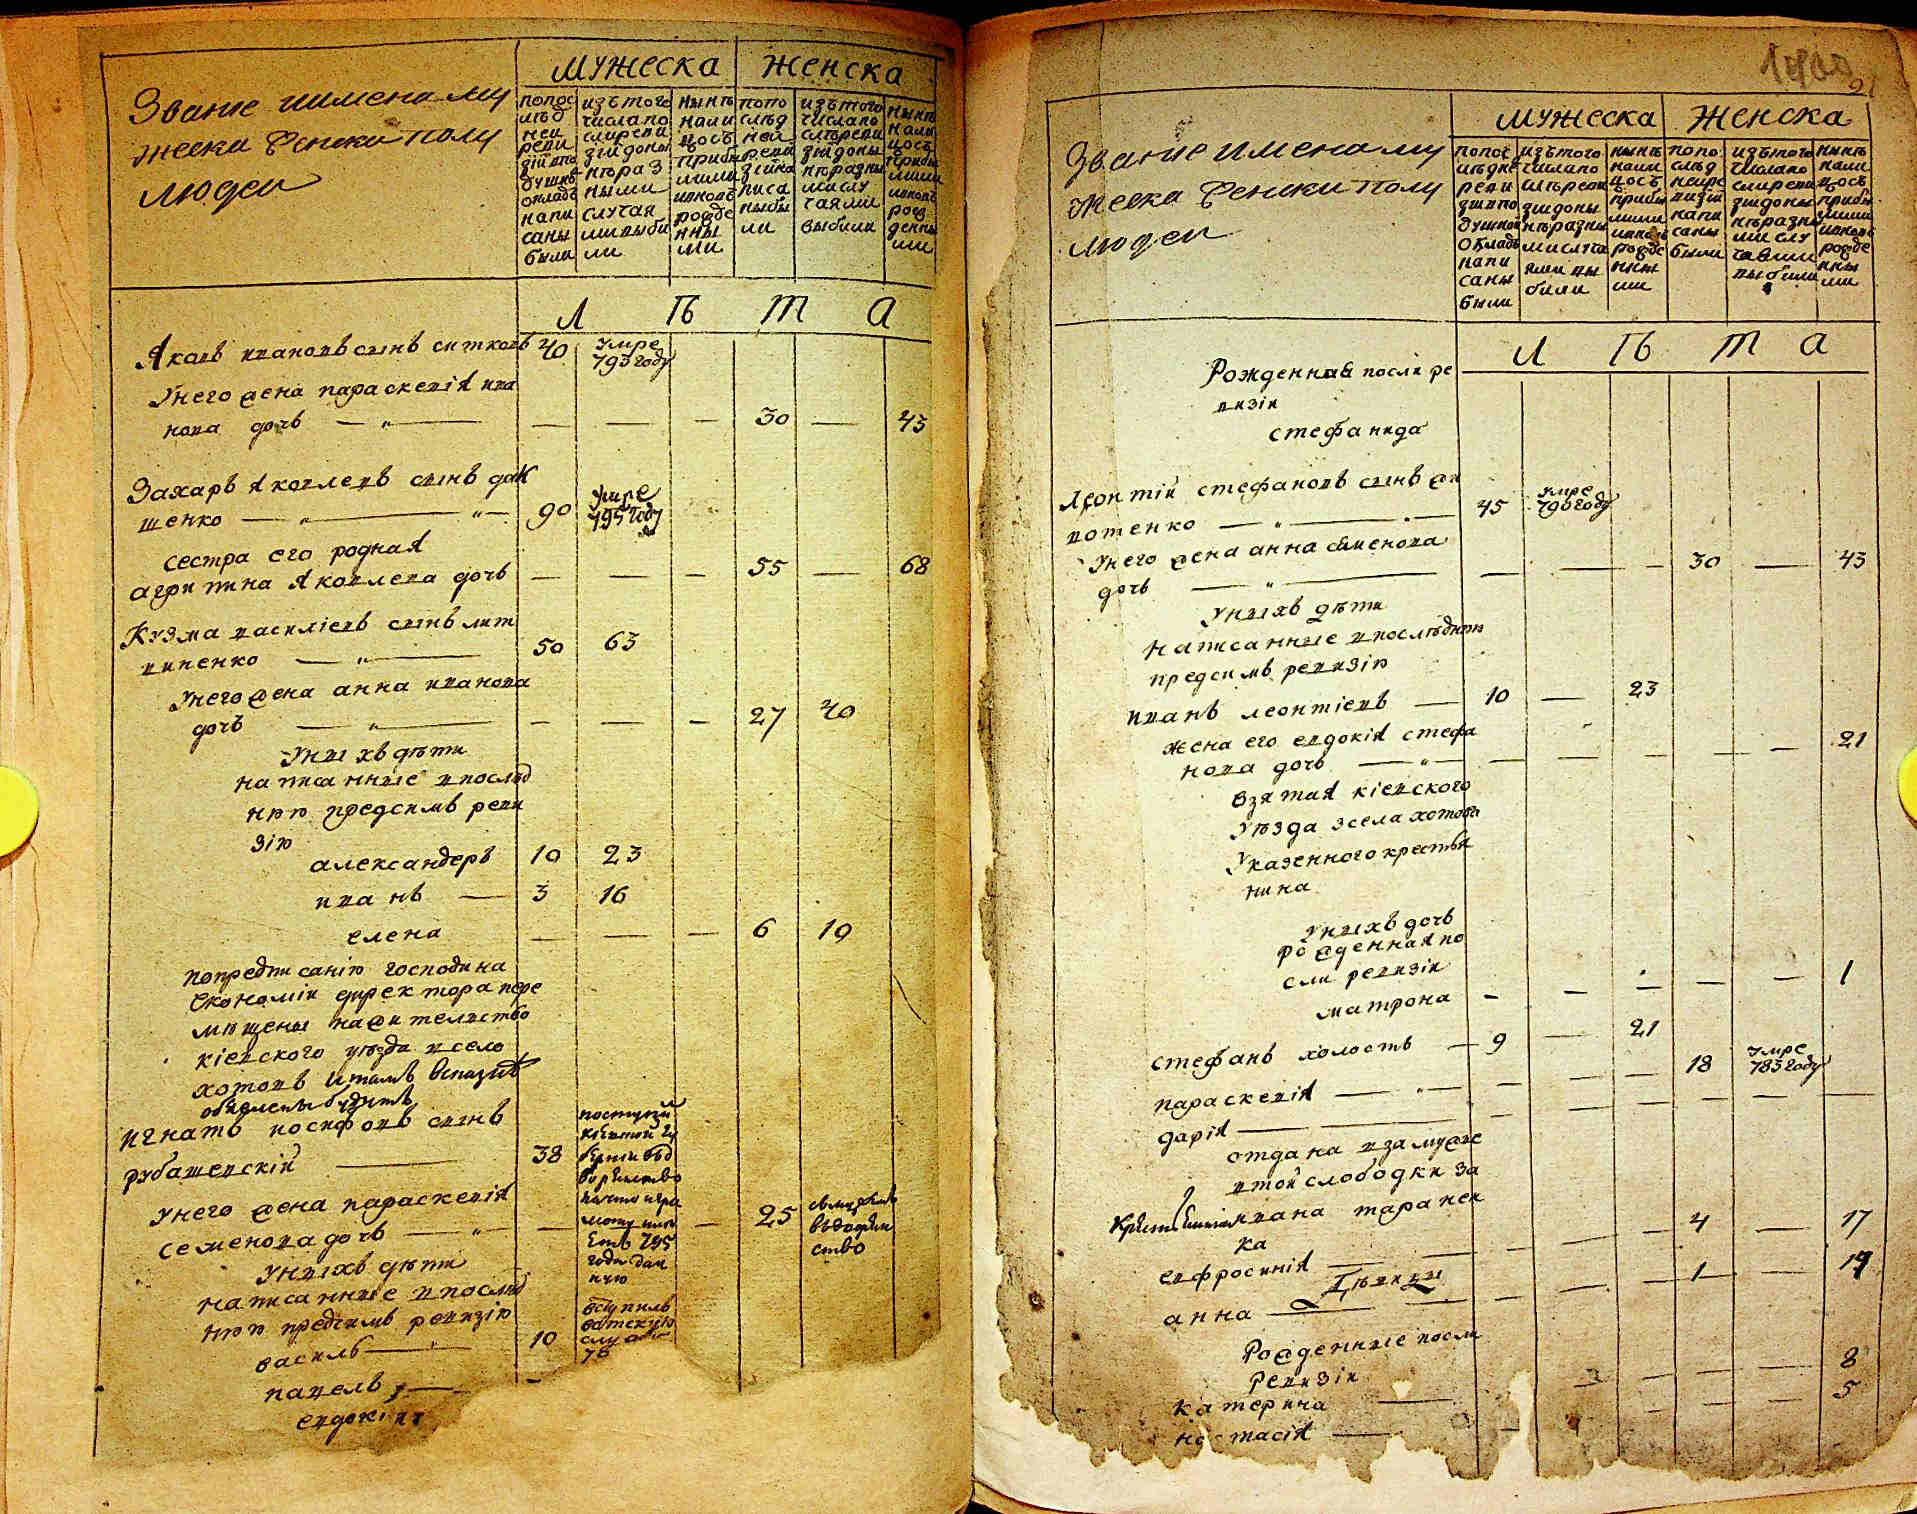 Званіе иимена му
жеска Женска полу
людеи
мужеска
женска
попос
лѣд
неи
реви
зіи впо
душно
окладъ
напи
саны
были
изътого
числапо
слиреви
зіи доны
нѣраз
ными
случая
ми выбы
ли
нынѣ
нали
цосъ
прибы
лыми
ивновь
рожде
нны
ми
попо
слѣд
ней
реви
зіи на
писа
ны бы
ли
изътого
числапо
слѣреви
зіи доны
нѣразны
ми слу
чаями
выбыли
нынѣ
нали
цосъ
прибы
лыми
ивновь
рож
денны
ми
Л Ѣ Т А
Яковъ ивановъ сынъ ситковъ 40 умре
793 году
Унего жена параскевія ива
нова дочь — „ — — — — 30 — 43
Захаръ Яковлевъ сынъ дак
шенко — „ — 90 умре
795 году
сестра его родная
агрипина Яковлева дочь — — — 55 — 68
Кузма василіевъ сынъ лит
виненко — „ — 50 63
Унего жена анна иванова
дочь — „ — — — — 27 40
Унихъ дѣти
написанные впослѣд
нюю предсимъ реви
зію
александеръ 10 23
иванъ — 3 16
елена — — — 6 19
попредписанію господина
економіи директора пере
мѣщены нажителство
кіевского уѣзда всело
хотовъ итамъ всказкѣ
обявлены будутъ
игнатъ иосифовъ сынъ
рубашевскій — 38
поступи
кіевской гу
берни въд
ворянство
Унего жена параскевія
семенова дочь — „ — — — 25
795
года дан
ную
Унихъ дѣти
написанные впослѣд
нюю предсимъ ревизію
василь — „ 10
вступилъ
вштатскую
службу
павелъ — —
евдокія
21
Званіе имена му
жеска Женски полу
людеи
мужеска
женска
попос
лѣдне
реви
зіи впо
душной
окладъ
напи
саны
были
изътого
числапо
слѣреви
зіи доны
нѣразны
ми случа
ями вы
были
нынѣ
нали
цосъ
прибы
лыми
ивновь
рожде
нны
ми
попо
слѣд
неире
визіи
напи
саны
были
изътого
числапо
слиреви
зіи доны
нѣразны
ми слу
чаями
выбыли
нынѣ
нали
цосъ
прибы
лыми
ивновь
рожде
нны
ми
Л Ѣ Т А
Рожденная посли ре
визіи
стефанида
Леонтій стефановъ сынъ жи
вотенко — „ — 45 умре
790 году
Унего жена анна семенова
дочь — „ — — — — 30 — 43
Унихъ дѣти
написанные впослѣднюю
предсимъ ревизію
иванъ леонтіевъ — 10 — 23
жена его евдокія стефа
нова дочь — „ — — — — — — 21
взятая кіевского
уѣзда зсела хотова
Указенного крестья
нина
Унихъ дочь
рожденная по
сли ревизіи
матрона — — — — — 1
стефанъ холостъ — 9 — 21
параскевія — „ — — — — 18 умре
785 году
дарія — — — — — — —
отдана взамуже
втой слободки за
крестьянина ивана таранен
ка — — — 4 — 17
евфросинія —
Дѣвицы
анна — — — — 1 — 14
Рожденные посли
ревизіи
катерина — — — — — — 8
настасія — — — — — 5